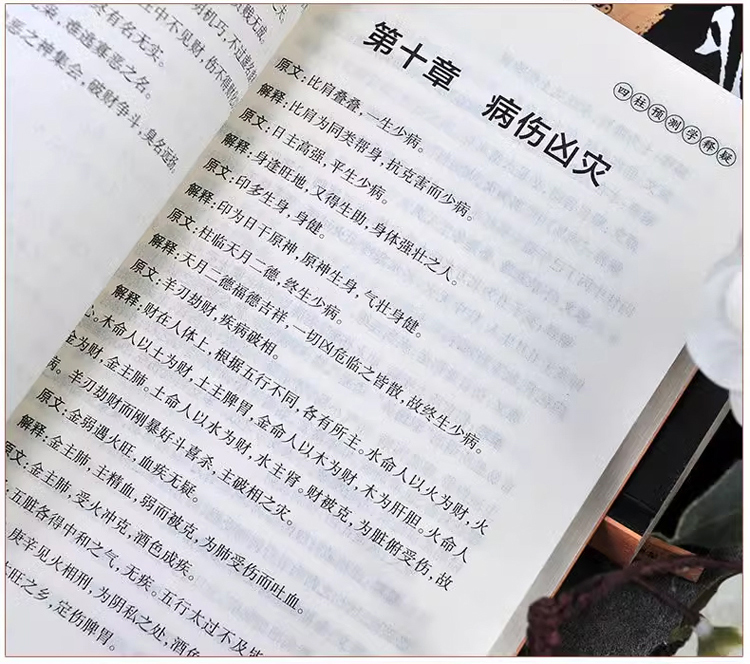 有名无实。
之神集会，破财争斗，臭名远扬
四柱预测学释疑
第十章 病伤凶灾
原文：比肩叠叠，一生少病。
解释：比肩为同类帮身，抗克害而少病。
原文：日主高强，平生少病。
解释：身逢旺地，又得生助，身体强壮之人。
原文：印多生身，身健。
解释：印为日干原神，原神生身，气壮身健。
原文：柱临天月二德，终生少病。
解释：天月二德福德吉祥，一切凶危临之皆散，故终生少病。
原文：羊刃劫财，疾病破相。
解释：财在人体上，根据五行不同，各有所主。水命人以火为财，火
心。木命人以土为财，土主脾胃，金命人以木为财，木为肝胆。火命人
金为财，金主肺。土命人以水为财，水主肾。财被克，为脏腑受伤，故
病。羊刃劫财而刚暴好斗喜杀，主破相之灾。
原文：金弱遇火旺，血疾无疑。
解释：金主肺，主精血，弱而被克，为肺受伤而吐血。
原文：金主肺，受火冲克，酒色成疾。
：五脏各得中和之气，无疾。五行太过不及皆
庚辛见火相刑，为阴私之处，酒色
旺之乡，定伤脾胃。